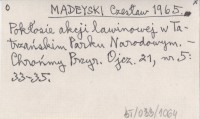 MADEYSKI Czesław 1965.
Pokłosie akcji lawinowej w Ta-
trzańskim Parku Narodowym. -
Chrońmy Przyr. Ojcz. 21, nr. 5:
33-35.